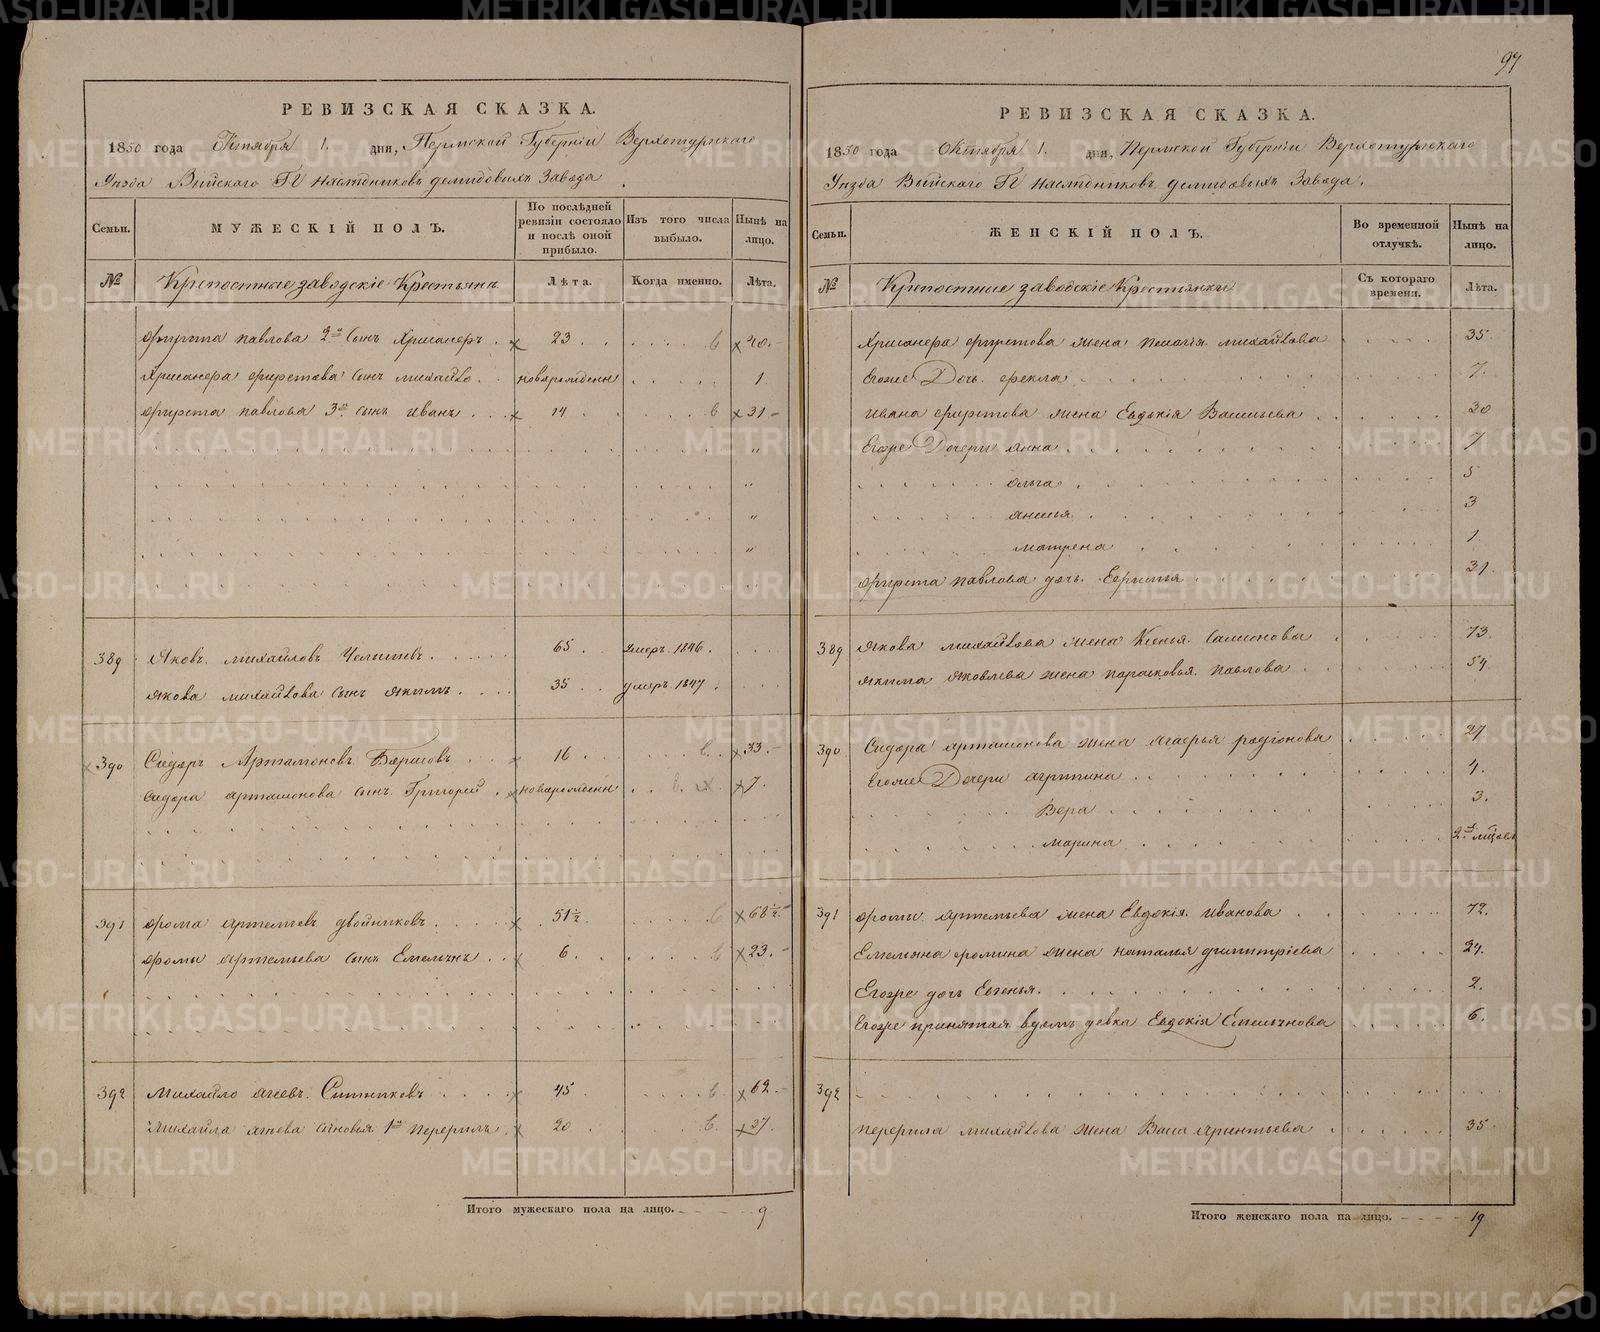 97
РЕВИЗСКАЯ СКАЗКА.
1850 года Октября 1. дня, Пермской Губернiи Верхотурскаго
Уѣзда Выйскаго ГГ Наслѣдниковъ демидовыхъ Завода.
Семьи. МУЖЕСКІЙ ПОЛЪ. По послѣдней ревизіи состояло и послѣ оной прибыло. Изъ того числа выбыло. Нынѣ на лицо.
№ Крѣпостные заводскіе Крестьянъ Лѣта. Когда именно. Лѣта.
Фирста павлова 2й сынъ Хрисанфъ 23 40
Хрисанфа фирстова сынъ михайло новорожденн 1
Фирста павлова 3й сынъ иванъ 14 31
389 Яковъ михайловъ 65 умеръ 1846.
якова михайлова сынъ якимъ 35 умеръ 1847.
390 Сидоръ Артамоновъ 16 33
Сидора артамонова сынъ Григорей новорожденн 7.
391 фома артемьевъ двойниковъ 51½ 68½
фомы артемьева сынъ Емельянъ 6 23
392 Михайло агеевъ Ситниковъ 45 62
Михайла агеева сыновья 1й перфилъ 20 37.
Итого мужескаго пола на лицо. 9
РЕВИЗСКАЯ СКАЗКА.
1850 года Октября 1. дня, Пермской Губернiи Верхотурскаго
Уѣзда Выйскаго ГГ Наслѣдниковъ демидовыхъ Завода.
Семьи. ЖЕНСКІЙ ПОЛЪ. Во временной отлучкѣ. Нынѣ на лицо.
№ Крѣпостные заводскіе Крестьянки Съ котораго времени. Лѣта.
Хрисанфа фирстова жена пелагія михайлова 35
Егоже Дочь фекла 7.
ивана фирстова жена Евдокія Васильева 30
Егоже Дочери анна 7
ольга 5
анисья 3
матрена 1
фирста павлова дочь Ефимья 31
389 якова михайлова жена Ксенья Самсонова 73
якима яковлева жена парасковья павлова 54
390 Сидора артамонова жена агафья родiонова 27
Егоже Дочери агрипина 4.
Вера 3.
марина 2хъ мѣсяцъ
391 фомы артемьева жена Евдокія иванова 72.
Емельяна фомина жена наталья димитріева 24.
Егоже дочь Евгенья 2.
Егоже принятая вдомъ девка Евдокія Емельянова 6.
392
перфила михайлова жена Васа 35
Итого женскаго пола на лицо. 19
METRIKI.GASO-URAL.RU